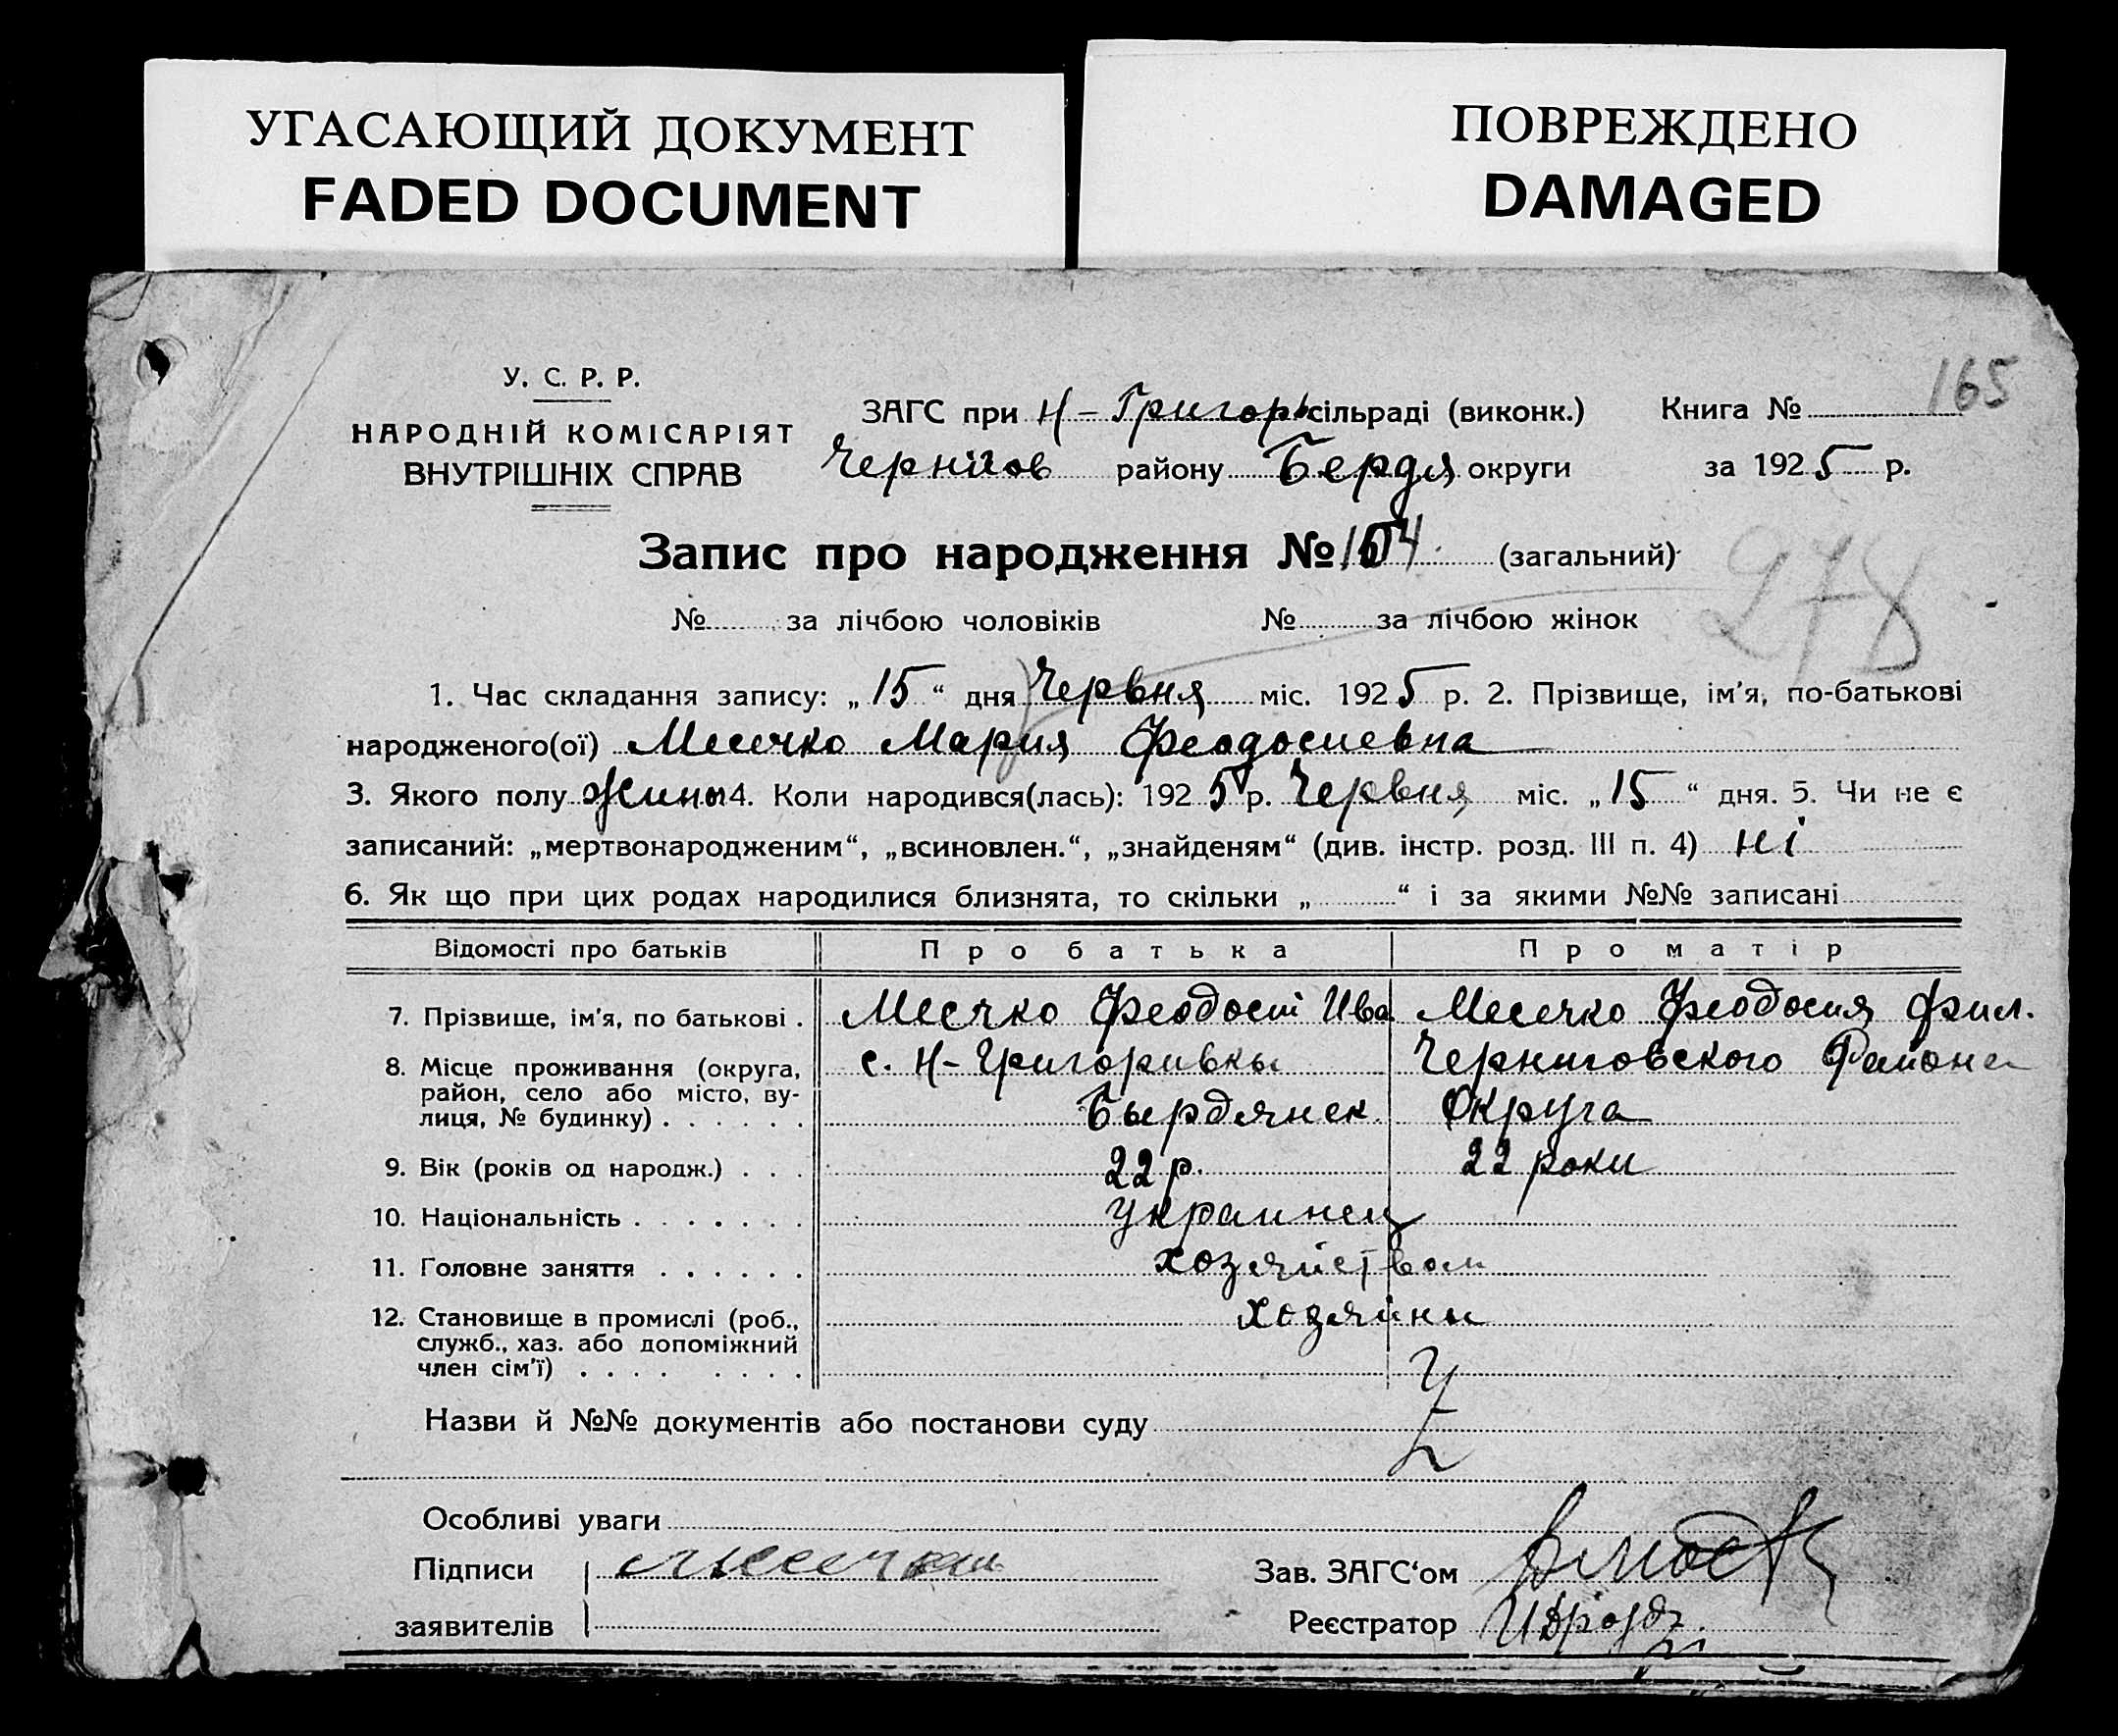 УГАСАЮЩИЙ ДОКУМЕНТ
FADED DOCUMENT
ПОВРЕЖДЕНО
DAMAGED
165
У. С. Р. Р.
НАРОДНІЙ КОМІСАРІЯТ
ВНУТРІШНІХ СПРАВ
ЗАГС при Н-Григорь сільраді (виконк.) Книга №
Чернігов району Бердя округи за 1925 р.
Запис про народження №104 (загальний)
278
№ за лічбою чоловіків № за лічбою жінок
1. Час складання запису: „15“ дня Червня міс. 1925 р. 2. Прізвище, ім'я, по-батькові
народженого(ої) Месечко Мария Феодосиевна
3. Якого полу жины 4. Коли народився(лась): 1925 р. Червня міс. „15“ дня. 5. Чи не є
записаний: „мертвонародженим“, „всиновлен.“, „знайденям“ (див. інстр. розд. III п. 4) ні
6. Як що при цих родах народилися близнята, то скільки „ “ і за якими №№ записані
Відомості про батьків Про батька Про матір
7. Прізвище, ім'я, по батькові . Месячко Феодосій Ива Месечко Феодосия Фил.
8. Місце проживання (округа, с. Н-Григоривкы Черниговского Района
район, село або місто, ву-
лиця, № будинку) . . . . . . Бырдянск Округа
9. Вік (років од народж.) . . . 22 р. 22 роки
10. Національність . . . . . . . украинец
11. Головне заняття . . . . . . хозяйством
12. Становище в промислі (роб., хозяины
служб., хаз. або допоміжний
член сім'ї) . . . . . . . .
Назви й №№ документів або постанови суду
Особливі уваги
Підписи Зав. ЗАГС'ом
заявителів Реєстратор